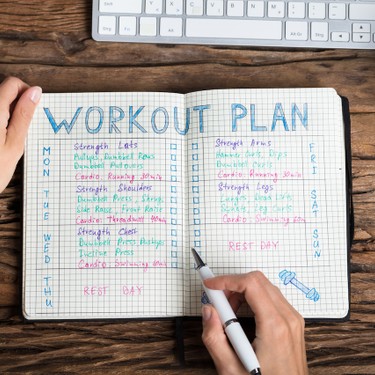 WORKOUT PLAN
MON
Strength Lats
Pullups, Dumbbell Rows
Dumbbell Pullovers
Cardio: Running 30min
TUE
Strength Shoulders
Dumbbell Press, Shrugs
Side Raise, Front Raise
Cardio: Threadmill 40min
WED
Strength Chest
Dumbbell Press Pushups
Incline Press
Cardio: Swimming 60min
THU
REST DAY
FRI
Strength Arms
Hammer Curls, Dips
Dumbbell Curls
Cardio: Running 30min
SAT
Strength Legs
Lunges, Dead Lifts
Leg Curls
Cardio: Swimming 60min
SUN
REST DAY